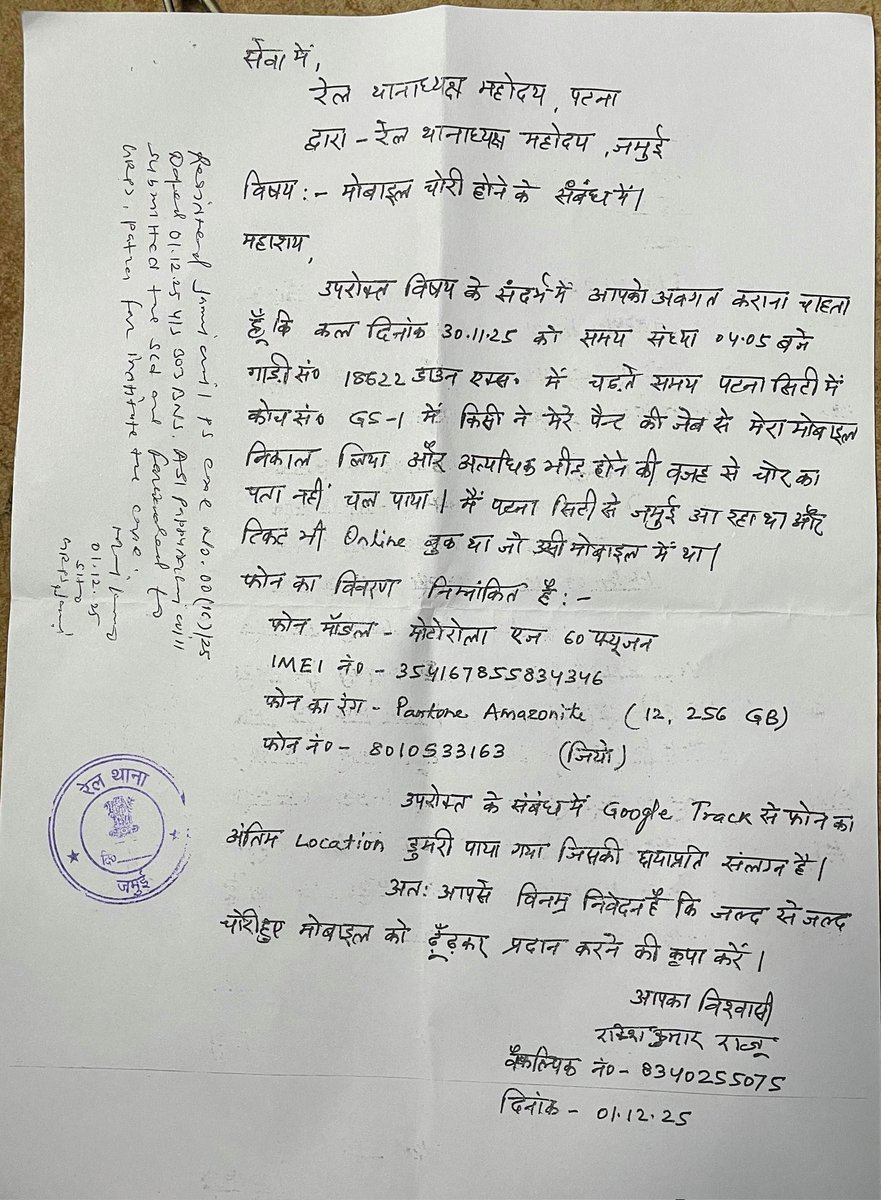 सेवा में,
रेल थानाध्यक्ष महोदय, पटना
द्वारा - रेल थानाध्यक्ष महोदय, जमुई
विषय :- मोबाइल चोरी होने के संबंध में।
महाशय,
उपरोक्त विषय के संदर्भ में आपको अवगत कराना चाहता
हूँ कि कल दिनांक 30.11.25 को समय संध्या 04.05 बजे
गाड़ी सं० 18622 डाउन एक्स० में चढ़ते समय पटना सिटी में
कोच सं० GS-1 में किसी ने मेरे पैन्ट की जेब से मेरा मोबाइल
निकाल लिया और अत्यधिक भीड़ होने की वजह से चोर का
पता नहीं चल पाया। मैं पटना सिटी से जमुई आ रहा था और
टिकट भी Online बुक था जो उसी मोबाइल में था।
फोन का विवरण निम्नांकित है :-
फोन मॉडल - मोटोरोला एज 60 फ्यूजन
IMEI नं० - 354167855834346
फोन का रंग - Pantone Amazonite (12, 256 GB)
फोन नं० - 8010533163 (जियो)
उपरोक्त के संबंध में Google Track से फोन का
अंतिम Location डुमरी पाया गया जिसकी छायाप्रति संलग्न है।
अतः आपसे विनम्र निवेदन है कि जल्द से जल्द
चोरी हुए मोबाइल को ढूँढ़कर प्रदान करने की कृपा करें।
आपका विश्वासी
कुमार राजू
वैकल्पिक नं० - 8340255075
दिनांक - 01.12.25
PS case No. 00(16)/25
Dated 01.12.25 U/S 303 BNS. ASI
submitted the and forwarded to
GRPS, Patna for institute the case.
01.12.25
SHO
GRPS Jamui
रेल थाना
दि०
जमुई